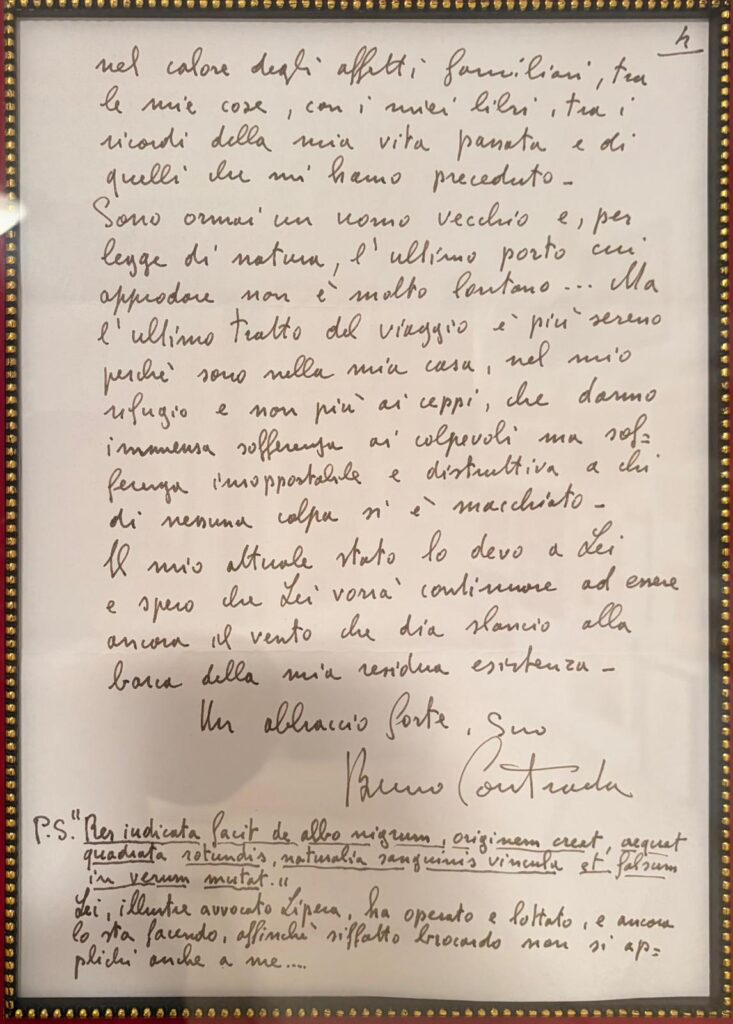 4
nel calore degli affetti familiari, tra
le mie cose, con i miei libri, tra i
ricordi della mia vita passata e di
quelli che mi hanno preceduto -
Sono ormai un uomo vecchio e, per
legge di natura, l'ultimo porto cui
approdare non è molto lontano... Ma
l'ultimo tratto del viaggio è più sereno
perchè sono nella mia casa, nel mio
rifugio e non più ai ceppi, che danno
immensa sofferenza ai colpevoli ma sof=
ferenza insopportabile e distruttiva a chi
di nessuna colpa si è macchiato -
Il mio attuale stato lo devo a Lei
e spero che Lei vorrà continuare ad essere
ancora il vento che dia slancio alla
barca della mia residua esistenza -
Un abbraccio forte, Suo
Bruno Contrada
P.S. "Res iudicata facit de albo nigrum, originem creat, aequat
quadrata rotundis, naturalia sanguinis vincula et falsum
in verum mutat."
Lei, illustre avvocato Lipera, ha operato e lottato, e ancora
lo sta facendo, affinchè siffatto brocardo non si ap=
plichi anche a me....